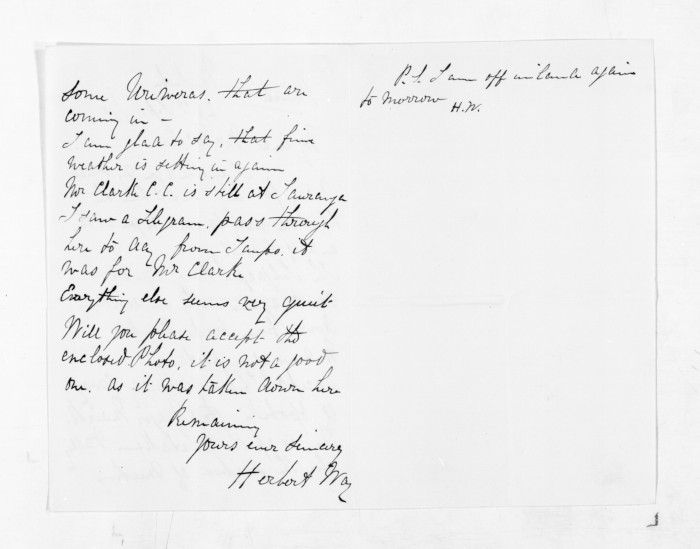 some Uriweras. that are
coming in –
I am glad to say, that fine
weather is setting in again
Mr Clarke C.C. is still at Tauranga
I saw a telegram. pass through
here to day from Taupo. it
was for Mr Clarke
Everything else seems very quiet
Will you please accept the
enclosed Photo. it is not a good
one. as it was taken down here
Remaining
Yours ever sincerely
Herbert Way
P.S. I am off inland again
to morrow
H.W.